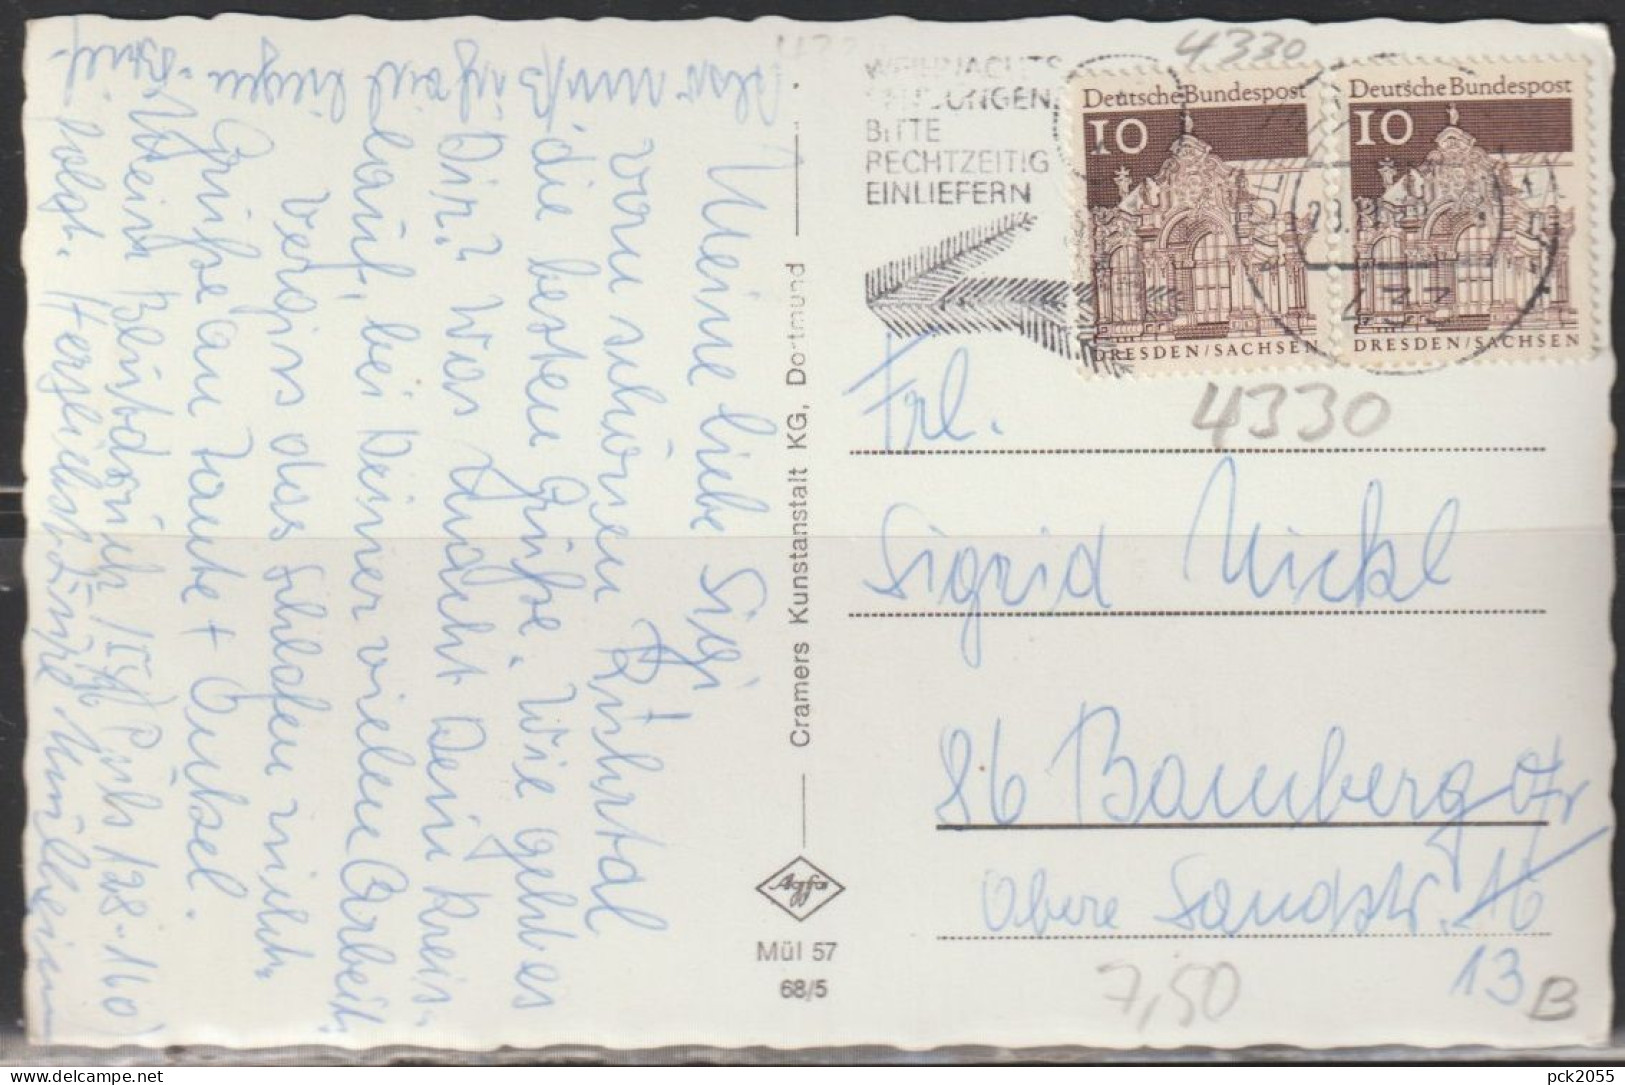 4330
WEIHNACHTS
SENDUNGEN
BITTE
RECHTZEITIG
EINLIEFERN
Deutsche Bundespost
10
DRESDEN/SACHSEN
Deutsche Bundespost
10
DRESDEN/SACHSEN
433
4330
Frl.
Sigrid Nickl
86 Bamberg
Obere Sandstr. 16
13
B
7,50
Cramers Kunstanstalt KG, Dortmund
Agfa
Mül 57
68/5
Meine liebe Sigi!
Vom schönen Ruhrtal
die besten Grüße. Wie geht es
Dir? Was macht Dein Kreis-
lauf, bei Deiner vielen Arbeit,
Vergiss das Schlafen nicht.
Grüße an Tante + Onkel.
Mein Blutdruck ist
folgt. Herzlichst